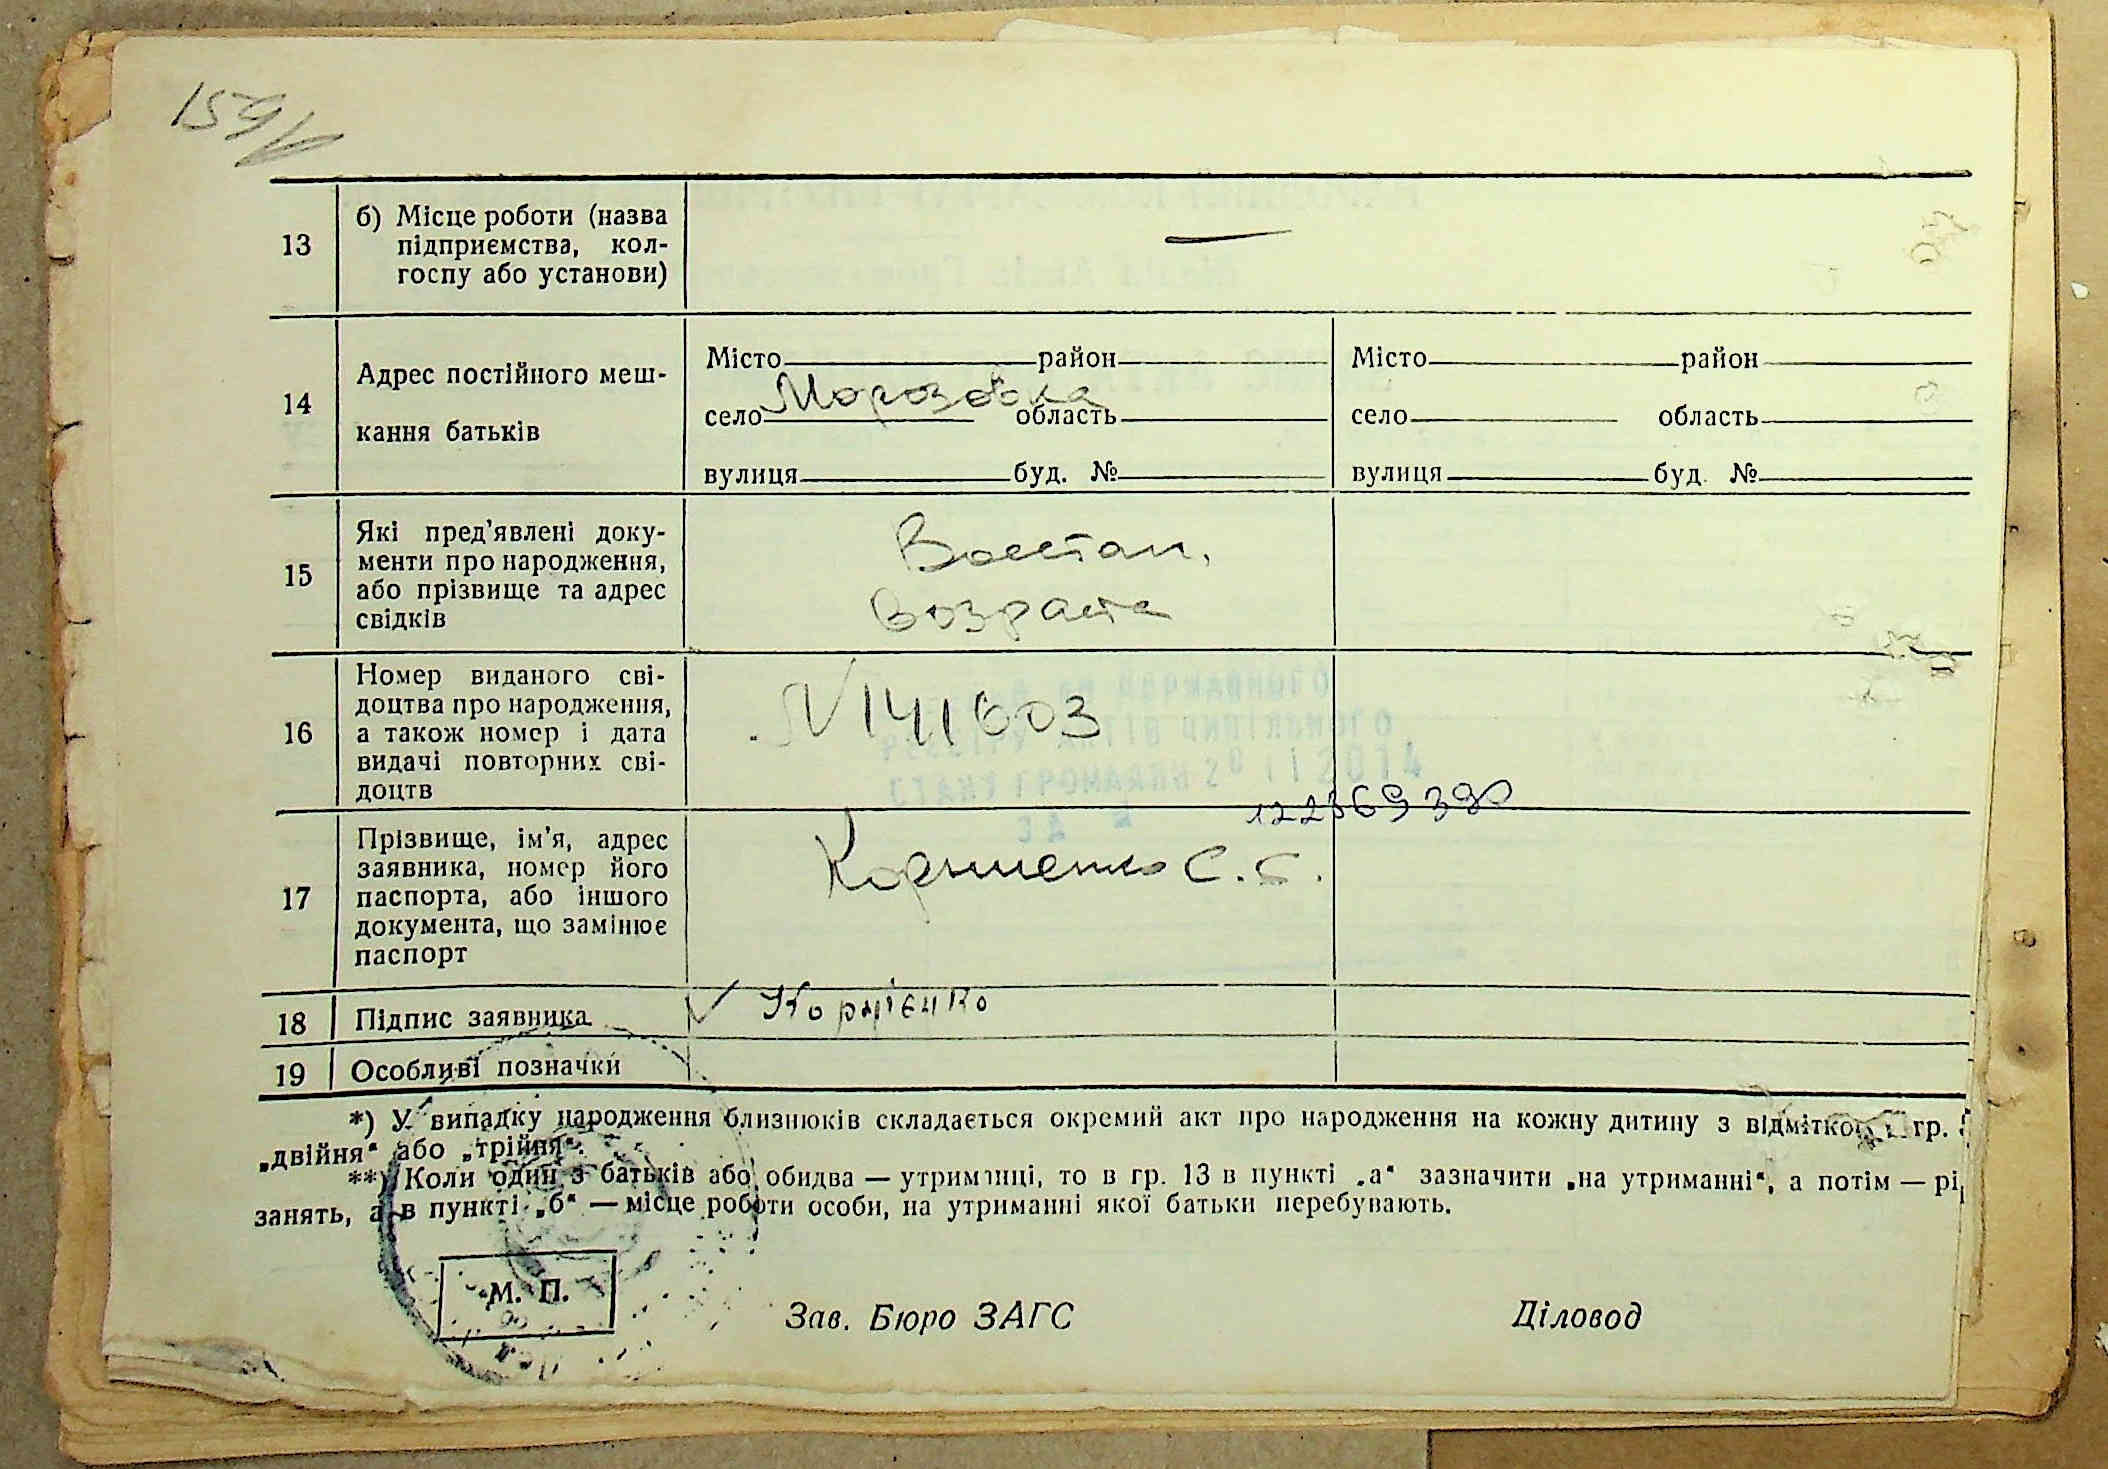 159
13
б) Місце роботи (назва
підприємства, кол-
госпу або установи)
—
14
Адрес постійного меш-
кання батьків
Місто район
село Морозовка область
вулиця буд. №
Місто район
село область
вулиця буд. №
15
Які пред'явлені доку-
менти про народження,
або прізвище та адрес
свідків
Восстан.
возраста
16
Номер виданого сві-
доцтва про народження,
а також номер і дата
видачі повторних сві-
доцтв
N 141603
ДЕРЖАВНОГО
РЕЄСТРУ АКТІВ ЦИВІЛЬНОГО
СТАНУ ГРОМАДЯН 20 11 2014
17
Прізвище, ім'я, адрес
заявника, номер його
паспорта, або іншого
документа, що замінює
паспорт
Корниенко С. С.
18
Підпис заявника
Корнієнко
19
Особливі позначки
*) У випадку народження близнюків складається окремий акт про народження на кожну дитину з відміткою гр.
„двійня“ або „трійня“.
**) Коли один з батьків або обидва — утриманці, то в гр. 13 в пункті „а“ зазначити „на утриманні“, а потім — рі
занять, а в пункті „б“ — місце роботи особи, на утриманні якої батьки перебувають.
М. П.
Зав. Бюро ЗАГС
Діловод